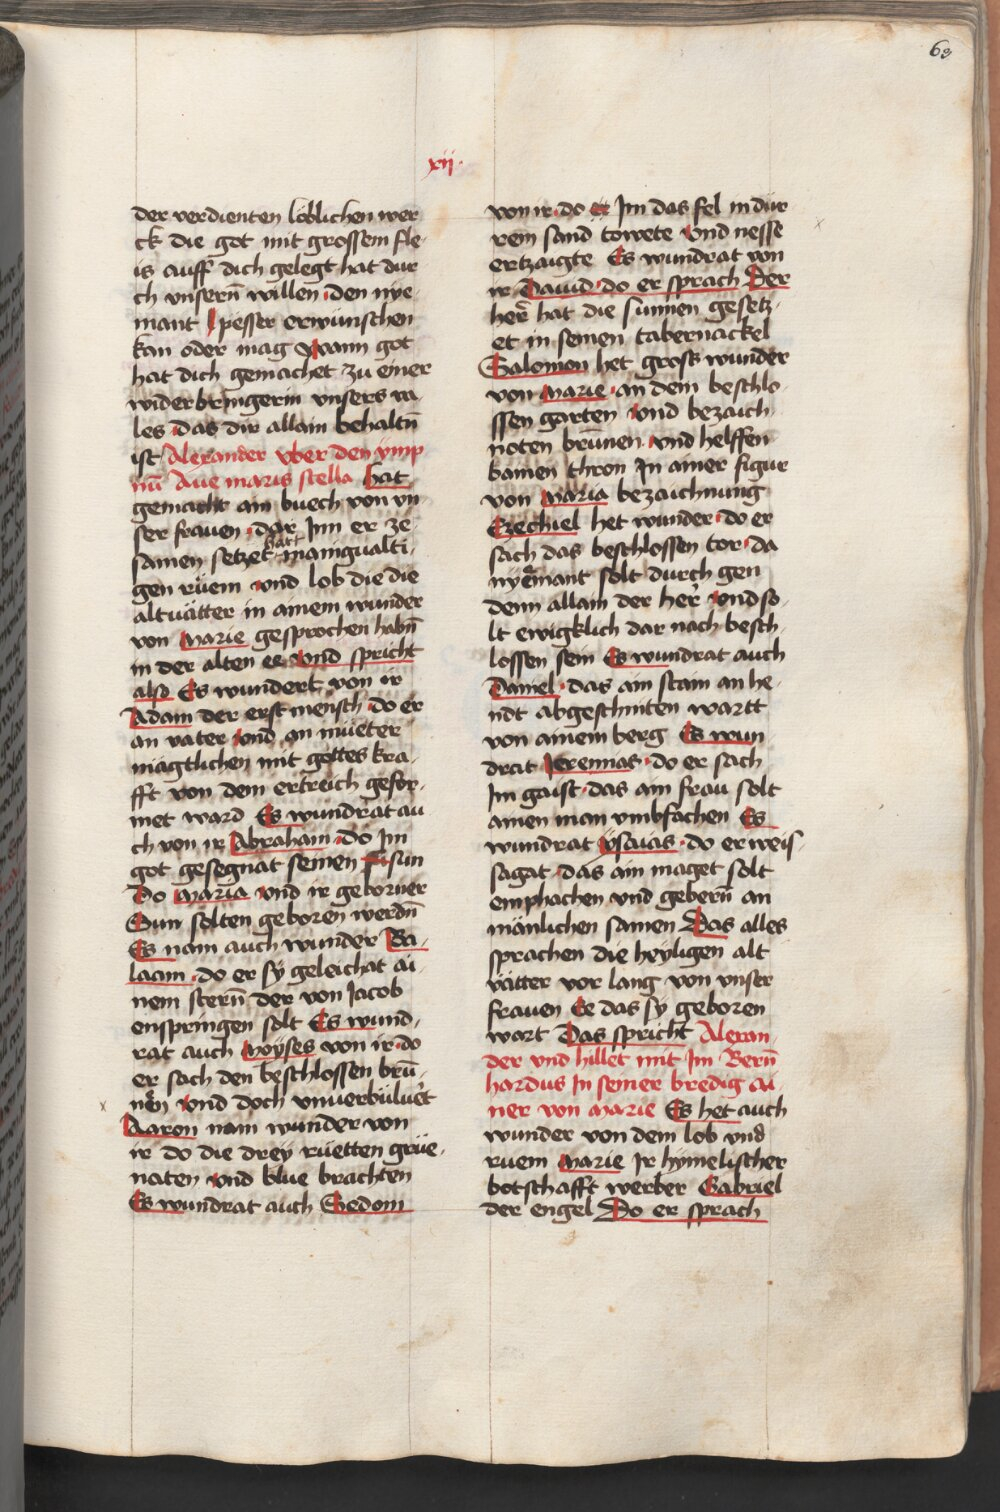 63
xij.
der verdienten löblichen wer
ck die got mit grossem fle
is auff dich gelegt hat dur
ch vnsern̄ willen den nye
mant pesser erwünschen
kan oder mag Wann got
hat dich gemachet zu einer
widerbringerin vnsers va
les das dir allain behaltn̄
ist Alexander vber den ymp
nū Aue maris stella hat
gemacht ain buech von vn
ser frauen dar Jnn er ze
samen setzet hat mainguälti
gen rüem vnd lob die die
altuätter in ainem wunder
von Marie gesprochen habn̄
in der alten ee vnd spricht
also Es wundert von ir
Adam der erst mensch do er
an vater vnd an müeter
mägtlichen mit gottes kra
fft von dem ertreich gefor
met ward Es wundrat au
ch von ir Abraham do Jm
got gesegnat seinen sun
Do Maria vnd ir geborner
Sun solten geboren werdn̄
Es nam auch wunder Ba
laam do er sy geleichat ai
nem stern̄ der von Jacob
enspringen solt Es wund
rat auch Moyses von ir do
er sach den beschlossen brū
nen vnd doch
Aaron nam wunder von
ir do die drey rüetten grüe
naten vnd blue brachten
Es wundrat auch Gedeom
von ir do er Jm das fel in dür
rem sand towete vnd nesse
ertzaigte Es wundrat von
ir Dauid do er sprach Der
her̄ hat die sunnen gesetz
et in seinen tabernackel
Salomon het gross wunder
von Marie an dem beschlo
ssen garten vnd bezaich
noten brunnen vnd helffen
bainen thron Jn ainer figur
von Maria bezaichnung
Ezechiel het wunder do er
sach das beschlossen tor da
nyemant solt durch gen
denn allain der her̄ vnd so
lt ewigklich dar nach besch
lossen sein Es wundrat auch
Daniel das ain stain an he
ndt abgeschniten wartt
von ainem berg Es wun
drat Jeremias do er sach
Jm gaist das ain frau solt
ainen man vmbfachen Es
wundrat ysaias do er weis
sagat das ain maget solt
emphachen vnd gebern̄ an
mänlichen samen Das alles
sprachen die heyligen alt
vätter vor lang von vnser
frauen Ee das sy geboren
wart Das spricht Alexan
der vnd hillet mit Jm Bern̄
hardus Jn seiner bredig ai
ner von Marie Es het auch
wunder von dem lob vnd
ruem Marie Jr hymelischer
botschafft werber Gabriel
der engel Do er sprach